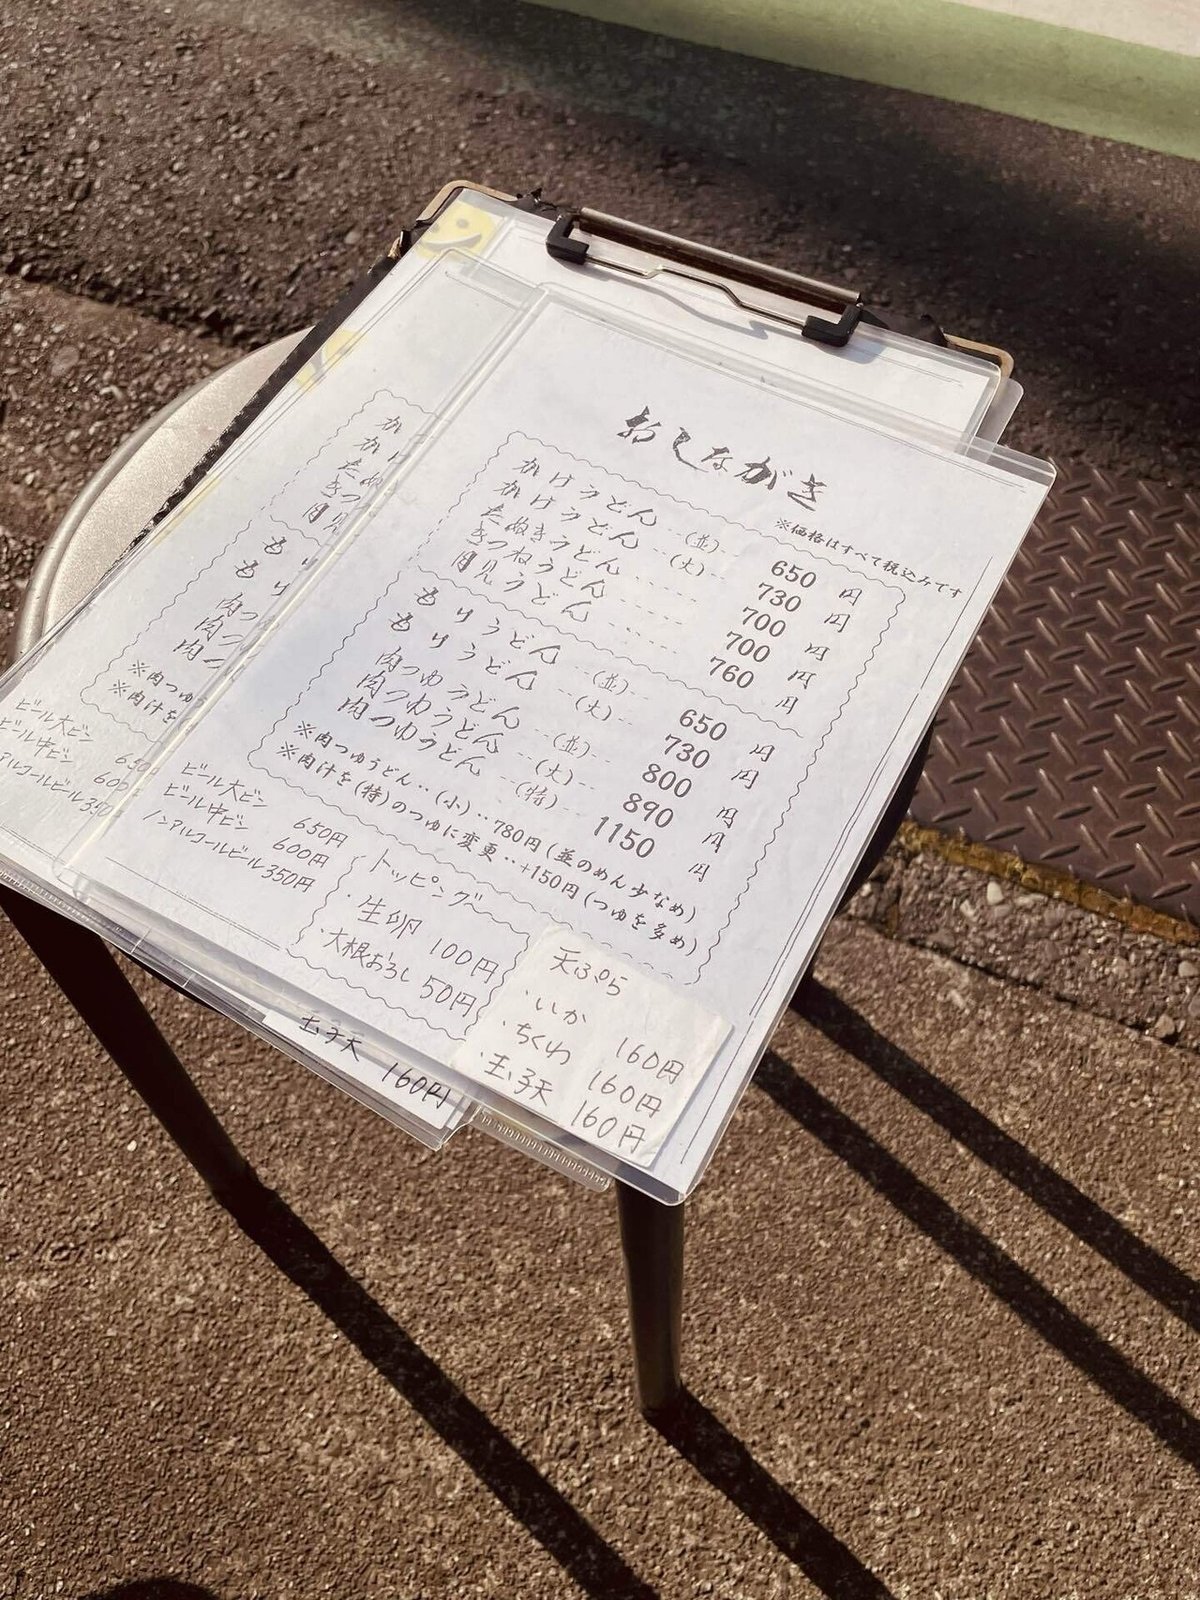 おしながき
※価格はすべて税込みです
かけうどん‥(並)‥ 650 円
かけうどん‥(大)‥ 730 円
たぬきうどん‥‥‥ 700 円
きつねうどん‥‥‥ 700 円
月見うどん‥‥‥ 760 円
もりうどん‥(並)‥ 650 円
もりうどん‥(大)‥ 730 円
肉つゆうどん‥(並)‥ 800 円
肉つゆうどん‥(大)‥ 890 円
肉つゆうどん‥(特)‥ 1150 円
※肉つゆうどん‥(小)‥780円(並のめん少なめ)
※肉汁を(特)のつゆに変更‥+150円(つゆを多め)
ビール大ビン 650円
ビール中ビン 600円
ノンアルコールビール350円
トッピング
・生卵 100円
・大根おろし 50円
天ぷら
・いか 160円
・ちくわ 160円
・玉子天 160円
か
か
たぬ
きつ
月見
もり
も
肉つ
肉つ
肉つ
※肉つゆ
※肉汁を
ビール大ビン 650
ビール中ビン 600
アルコールビール350
玉子天 160円